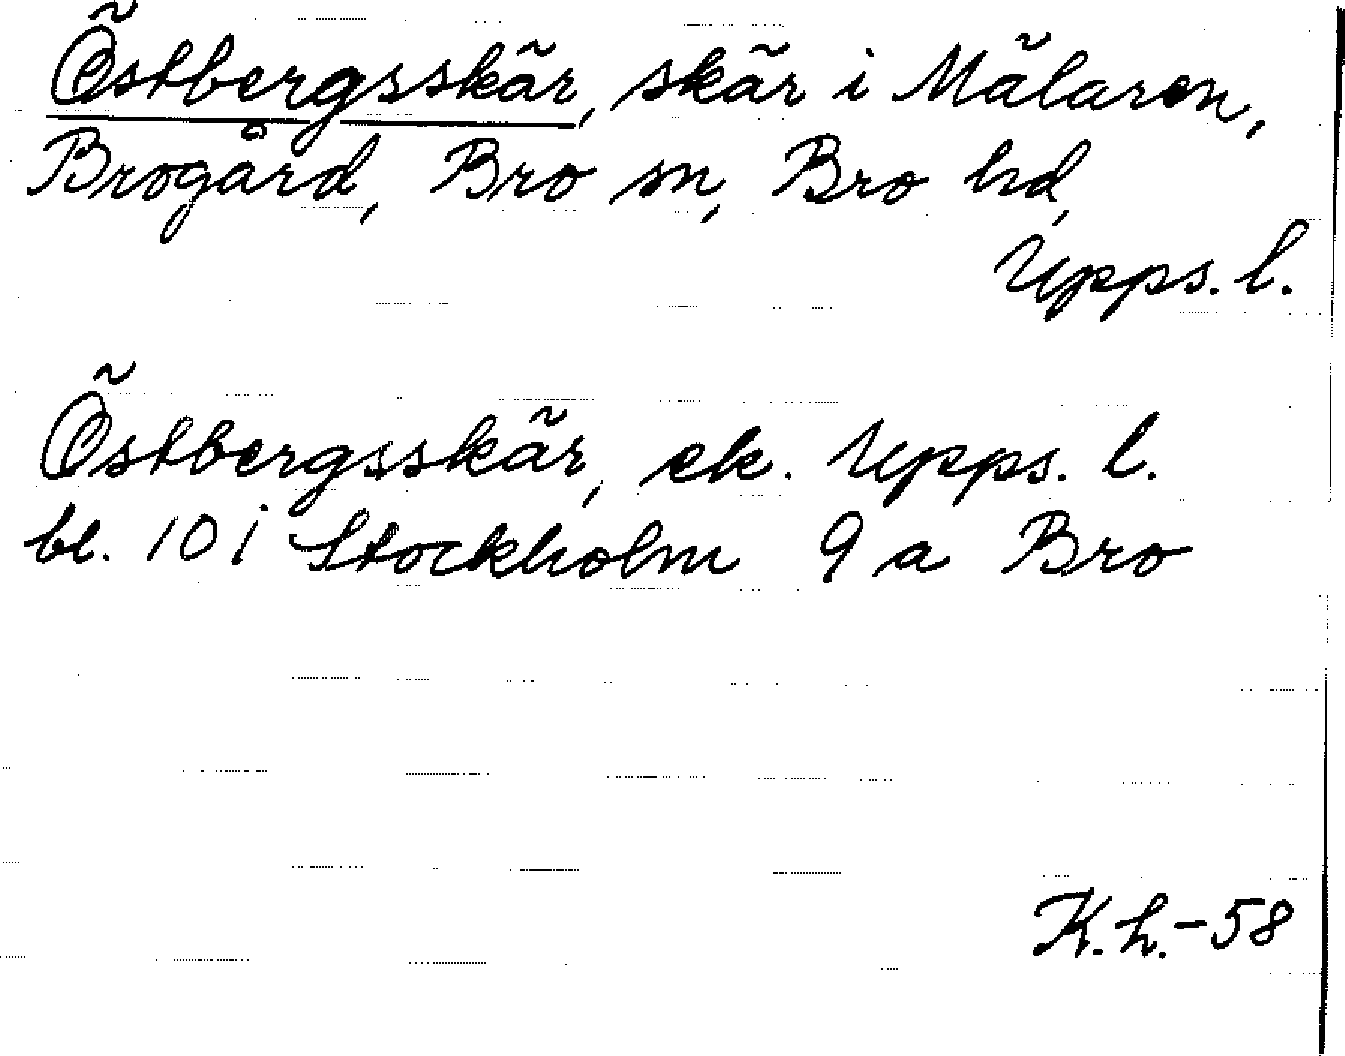 Östbergsskär, skär i Mälaren,
Brogård, Bro sn, Bro hd,
Upps. l.
Östbergsskär, ek. Upps. l.
bl. 101 Stockholm 9 a Bro
K.h.-58